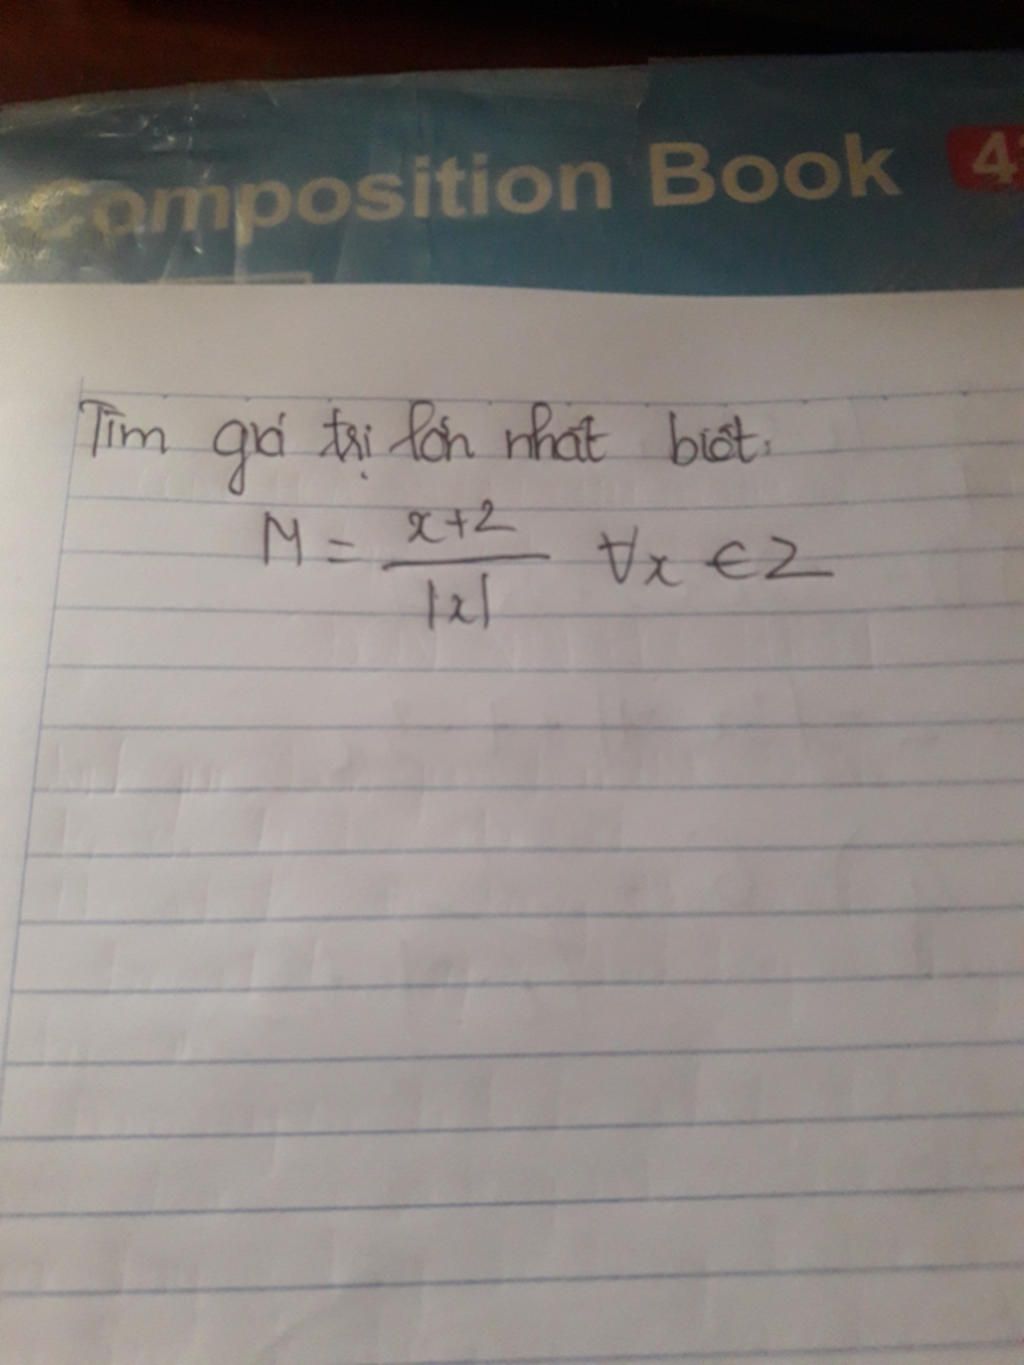 Composition Book 4
Tìm giá trị lớn nhất biết:
M = x+2 / |x| ∀x ∈ Z